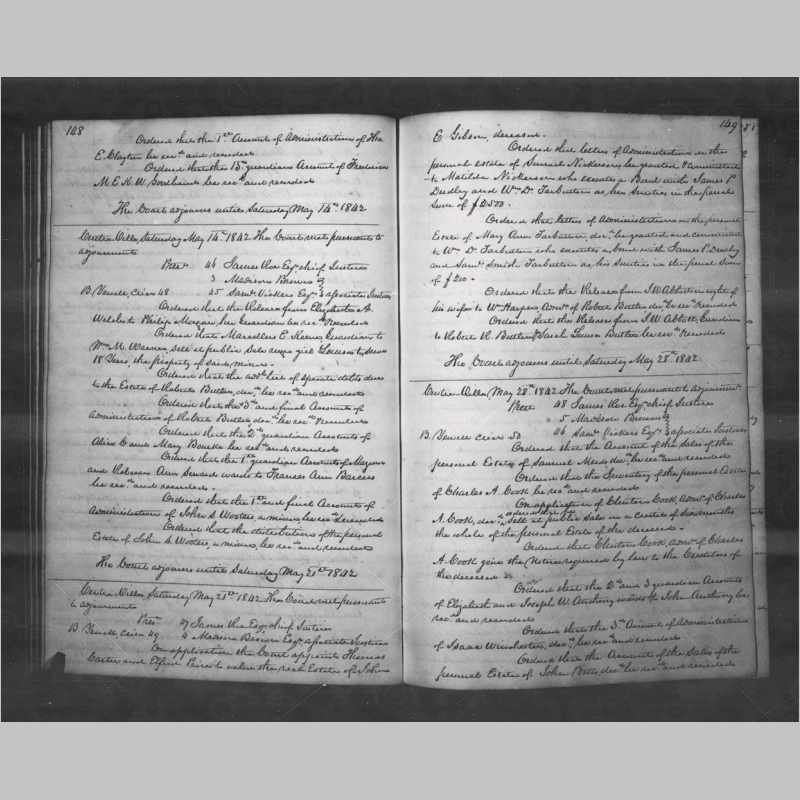 148
Ordered that the 1st Account of Administration of Tho
E. Clayton be recd and recorded
Ordered that the 15th guardian Account of
M. E. H. W. be recd and recorded
The Court adjourns until Saturday May 14th 1842
Centre Ville, Saturday May 14th 1842 The Court met pursuant to
adjournment
Prest 46 James Esqr chief Justice
3 Madison Brown
B. crier 48 45 Saml Vickers Esqr associate Justices
Ordered that the Release from Elizabeth A.
Welch to Philip Morgan her Guardian be recd & recorded
Ordered that E. Keene Guardian to
Wm M. Warner, sell at public Sale one girl to serve
18 years, the property of said minor.
Ordered that the addl List of sperate debts due
to the Estate of Robert Butler, decd, be recd and recorded
Ordered that the 3d and final Account of
Administration of Robert Butler, decd, be recd & recorded
Ordered that the 2d guardian Account of
Alice C and Mary Bourke be recd and recorded
Ordered that the 1st guardian Account of
and Ann Seward wards to Frances Ann
be recd and recorded.
Ordered that the 1st and final Account of
Administration of John S. Wooters, a minor, be recd & recorded
Ordered that the distribution of the personal
Estate of John S. Wooters, a minor, be recd and recorded
The Court adjourns until Saturday May 21st 1842
Centre Ville, Saturday May 21st 1842 The Court met pursuant
to adjournment
Prest 47 James Esqr chief Justice
B. crier 49 4 Madison Brown Esqr associate Justices
On application the Court appoint Thomas
Carter and Price to value the real Estate of John
149
E Gibson, deceased.
Ordered that letters of Administration on the
personal estate of Samuel Nickerson be granted & committed
to Matilda Nickerson who executes a Bond with James P.
Dudley and Wm D. Tarbutton as her Sureties in the penal
Sum of $2500.
Ordered that letters of Administration on the personal
Estate of Mary Ann Tarbutton, decd, be granted and committed
to Wm D. Tarbutton who executes a bond with James P. Dudley
and Saml Smith Tarbutton as his Sureties in the penal Sum
of $200.
Ordered that the Release from J W Abbott in right of
his wife to Wm Harper Admr of Robert Butler decd be recd & recorded
Ordered that the Release from J. W. Abbott, Guardian
to Robert R. Butler & Sarah Louisa Butler be recd & recorded
The Court adjourns until Saturday May 28th 1842
Centre Ville, May 28th 1842 The Court met pursuant to adjournment
Prest 48 James Esqr chief Justice
5 Madison Brown
B. crier 50 46 Saml Vickers Esqr associate Justices
Ordered that the Account of the Sales of the
personal Estate of Samuel Meeds decd, be recd and recorded
Ordered that the Inventory of the personal Estate
of Charles A. Cook be recd and recorded
On application of Clinton Cook, admr of Charles
A. Cook, decd, ordered that he Sell at public Sale on a credit of six months
the whole of the personal Estate of the deceased.
Ordered that Clinton Cook, admr of Charles
A Cook give the Notice required by law to the Creditors of
the deceased &c
Ordered that the 2d and 3 guardian Accounts
of Elizabeth and Joseph W. Anthony wards of John Anthony be
recd and recorded
Ordered that the 3d Account of Administration
of Isaac Winchester, decd, be recd and recorded
Ordered that the Account of the Sales of the
personal Estate of John decd be recd and recorded